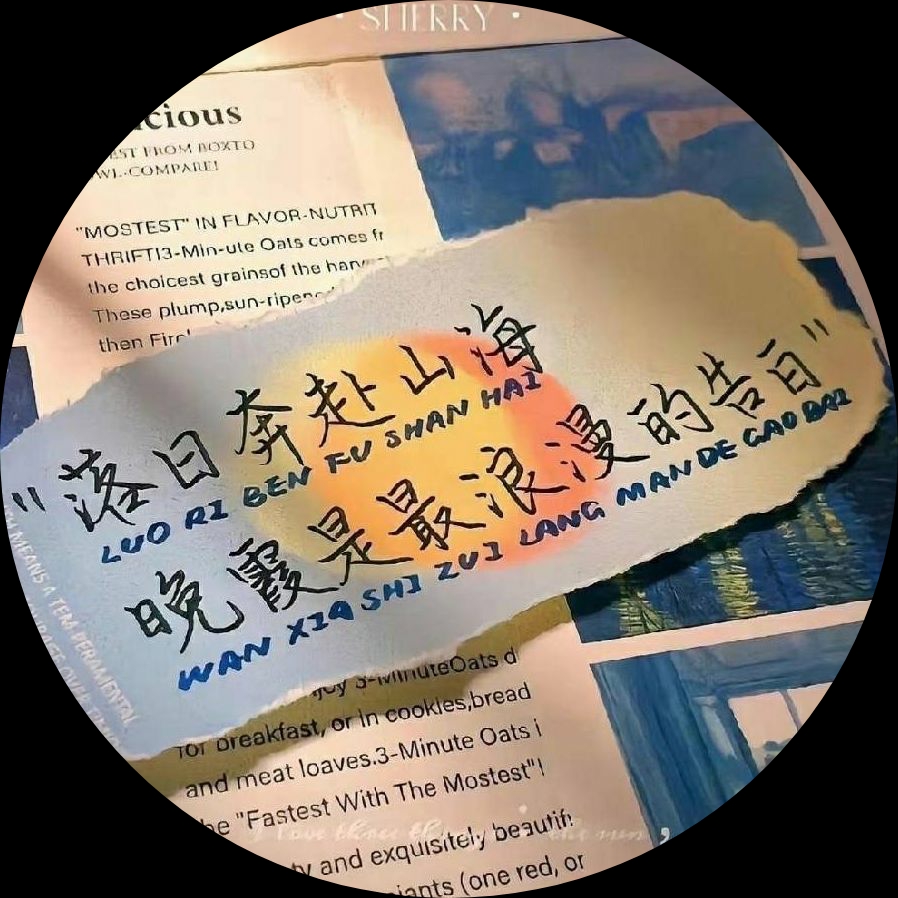 · SHERRY ·
cious
EST FROM BOXTO
WL-COMPARE!
"MOSTEST" IN FLAVOR-NUTRIT
THRIFT!3-Min-ute Oats comes fr
the choicest grainsof the harv
These plump,sun-ripen
than Fire
"落日奔赴山海
LUO RI BEN FU SHAN HAI
晚霞是最浪漫的告白"
WAN XIA SHI ZUI LANG MAN DE GAO BAI
MEANS A TEMPERAMENTAL
joy 3-MinuteOats d
for breakfast, or in cookies,bread
and meat loaves.3-Minute Oats i
he "Fastest With The Mostest"!
I love three things in the
ty and exquisitely beautif
giants (one red, or